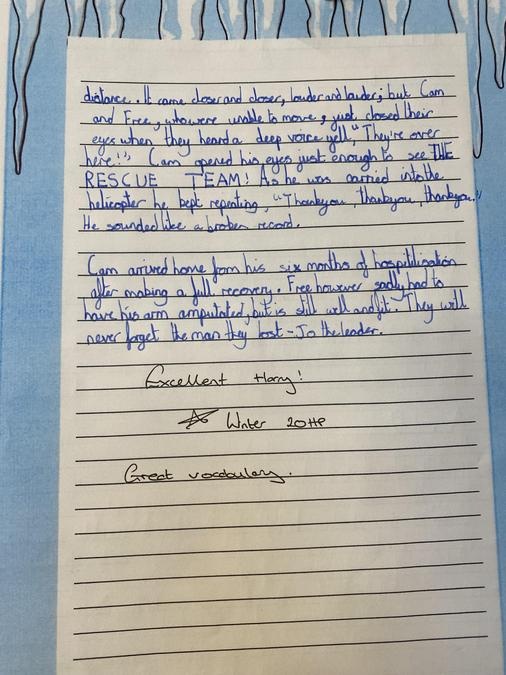 distance. It came closer and closer, louder and louder; but Cam
and Free, who were unable to move, just closed their
eyes when they heard a deep voice yell, "They're over
here!" Cam opened his eyes just enough to see THE
RESCUE TEAM! As he was carried into the
helicopter he kept repeating, "Thankyou, thankyou, thankyou."
He sounded like a broken record.
Cam arrived home from his six months of hospitilisation
after making a full recovery. Free however sadly had to
have his arm amputated, but is still well and fit. They will
never forget the man they lost - Jo the leader.
Excellent Harry!
Writer 20HP
Great vocabulary.